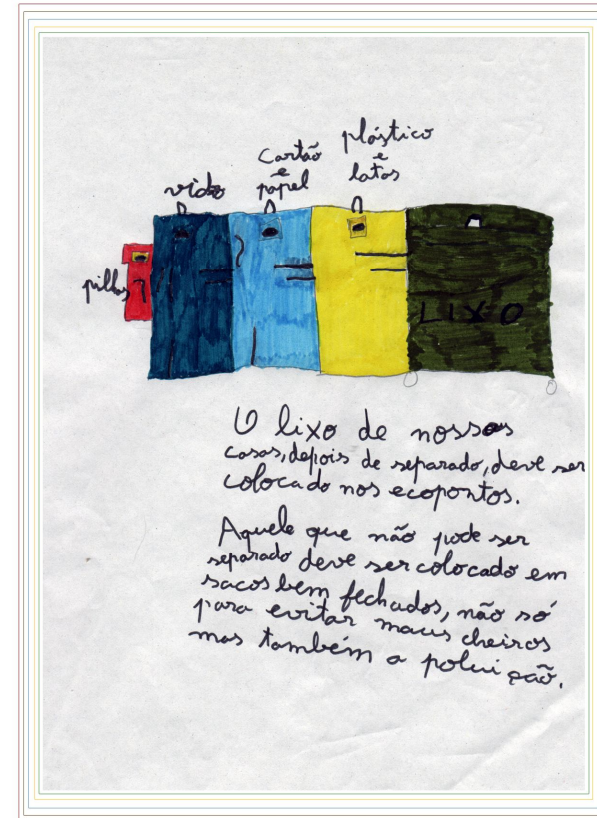 plástico
e
latas
Cartão
e
papel
vidro
pilhas
LIXO
O lixo de nossas
casas, depois de separado, deve ser
colocado nos ecopontos.
Aquele que não pode ser
separado deve ser colocado em
sacos bem fechados, não só
para evitar maus cheiros
mas também a poluição.